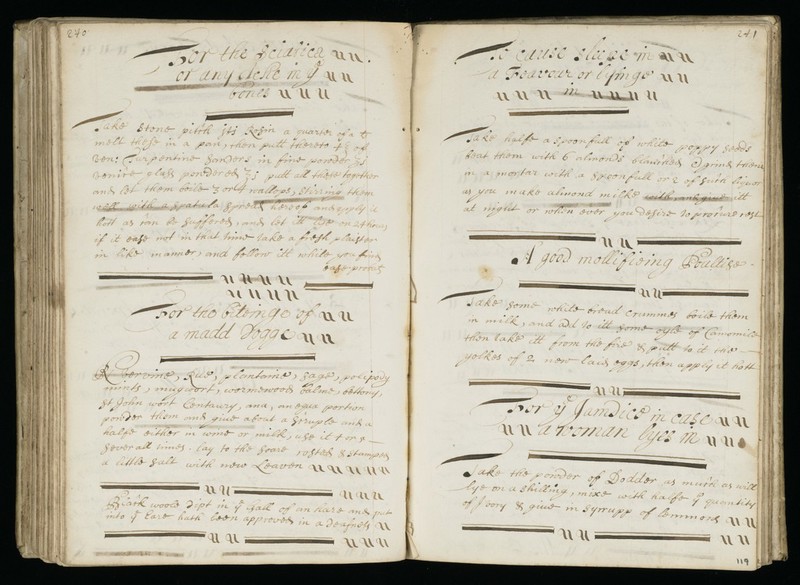 240
For the Sciatica
or any Ache in yͤ
bones
Take Stone pitch ℥ii Rosin a quarter of a
melt these in a pan, then putt thereto 4 of
Ven: Turpentine Sanders in fine powder
venice glass powdered putt all these together
and let them boile 3 or 4 wallops, stirring them
well with a spatula spread hereof and apply it
hott as can be suffered, and let itt lye on 24 houres
if it ease not in that time take a fresh plaister
in like manner, and follow itt while you find
ease
For the Stinge of
a madd Dogge
Rue, plantaine, sage, polipody
mints, mugwort, wormewood, balme, bettony,
St John wort Centaury, ana, an equa portion
powder them and give about a scruple and a
halfe either in wine or milk, use it 7 or 8
severall times. lay to the soare rosted & stamped
a little salt with new Leaven
Black wooll dipt in yͤ Gall of an Hare and put
into yͤ Eare hath been approved in a Deafness
241
To cause sleepe in
a Feavour or lyinge
in
Take halfe a spoonfull of white poppy seeds
beat them with 6 almonds blanched & grind them
in a mortar with a spoonfull or 2 of such liquor
as you make almond milke with, and give itt
at night or when ever you desire to procure rest
A good mollifieing Poultise
Take some white bread crummes boile them
in milk, and add to itt some oyle of Camomile
then take itt from the fire & putt to it the
yolkes of 2 new laid eggs, then apply it hott
For yͤ Jaundies in case
a woman lyes in
Take the powder of Dodder as much as will
lye on a shilling, mixe with halfe yͤ quantity
of Ivory & give in syrrupp of Lemmons
119